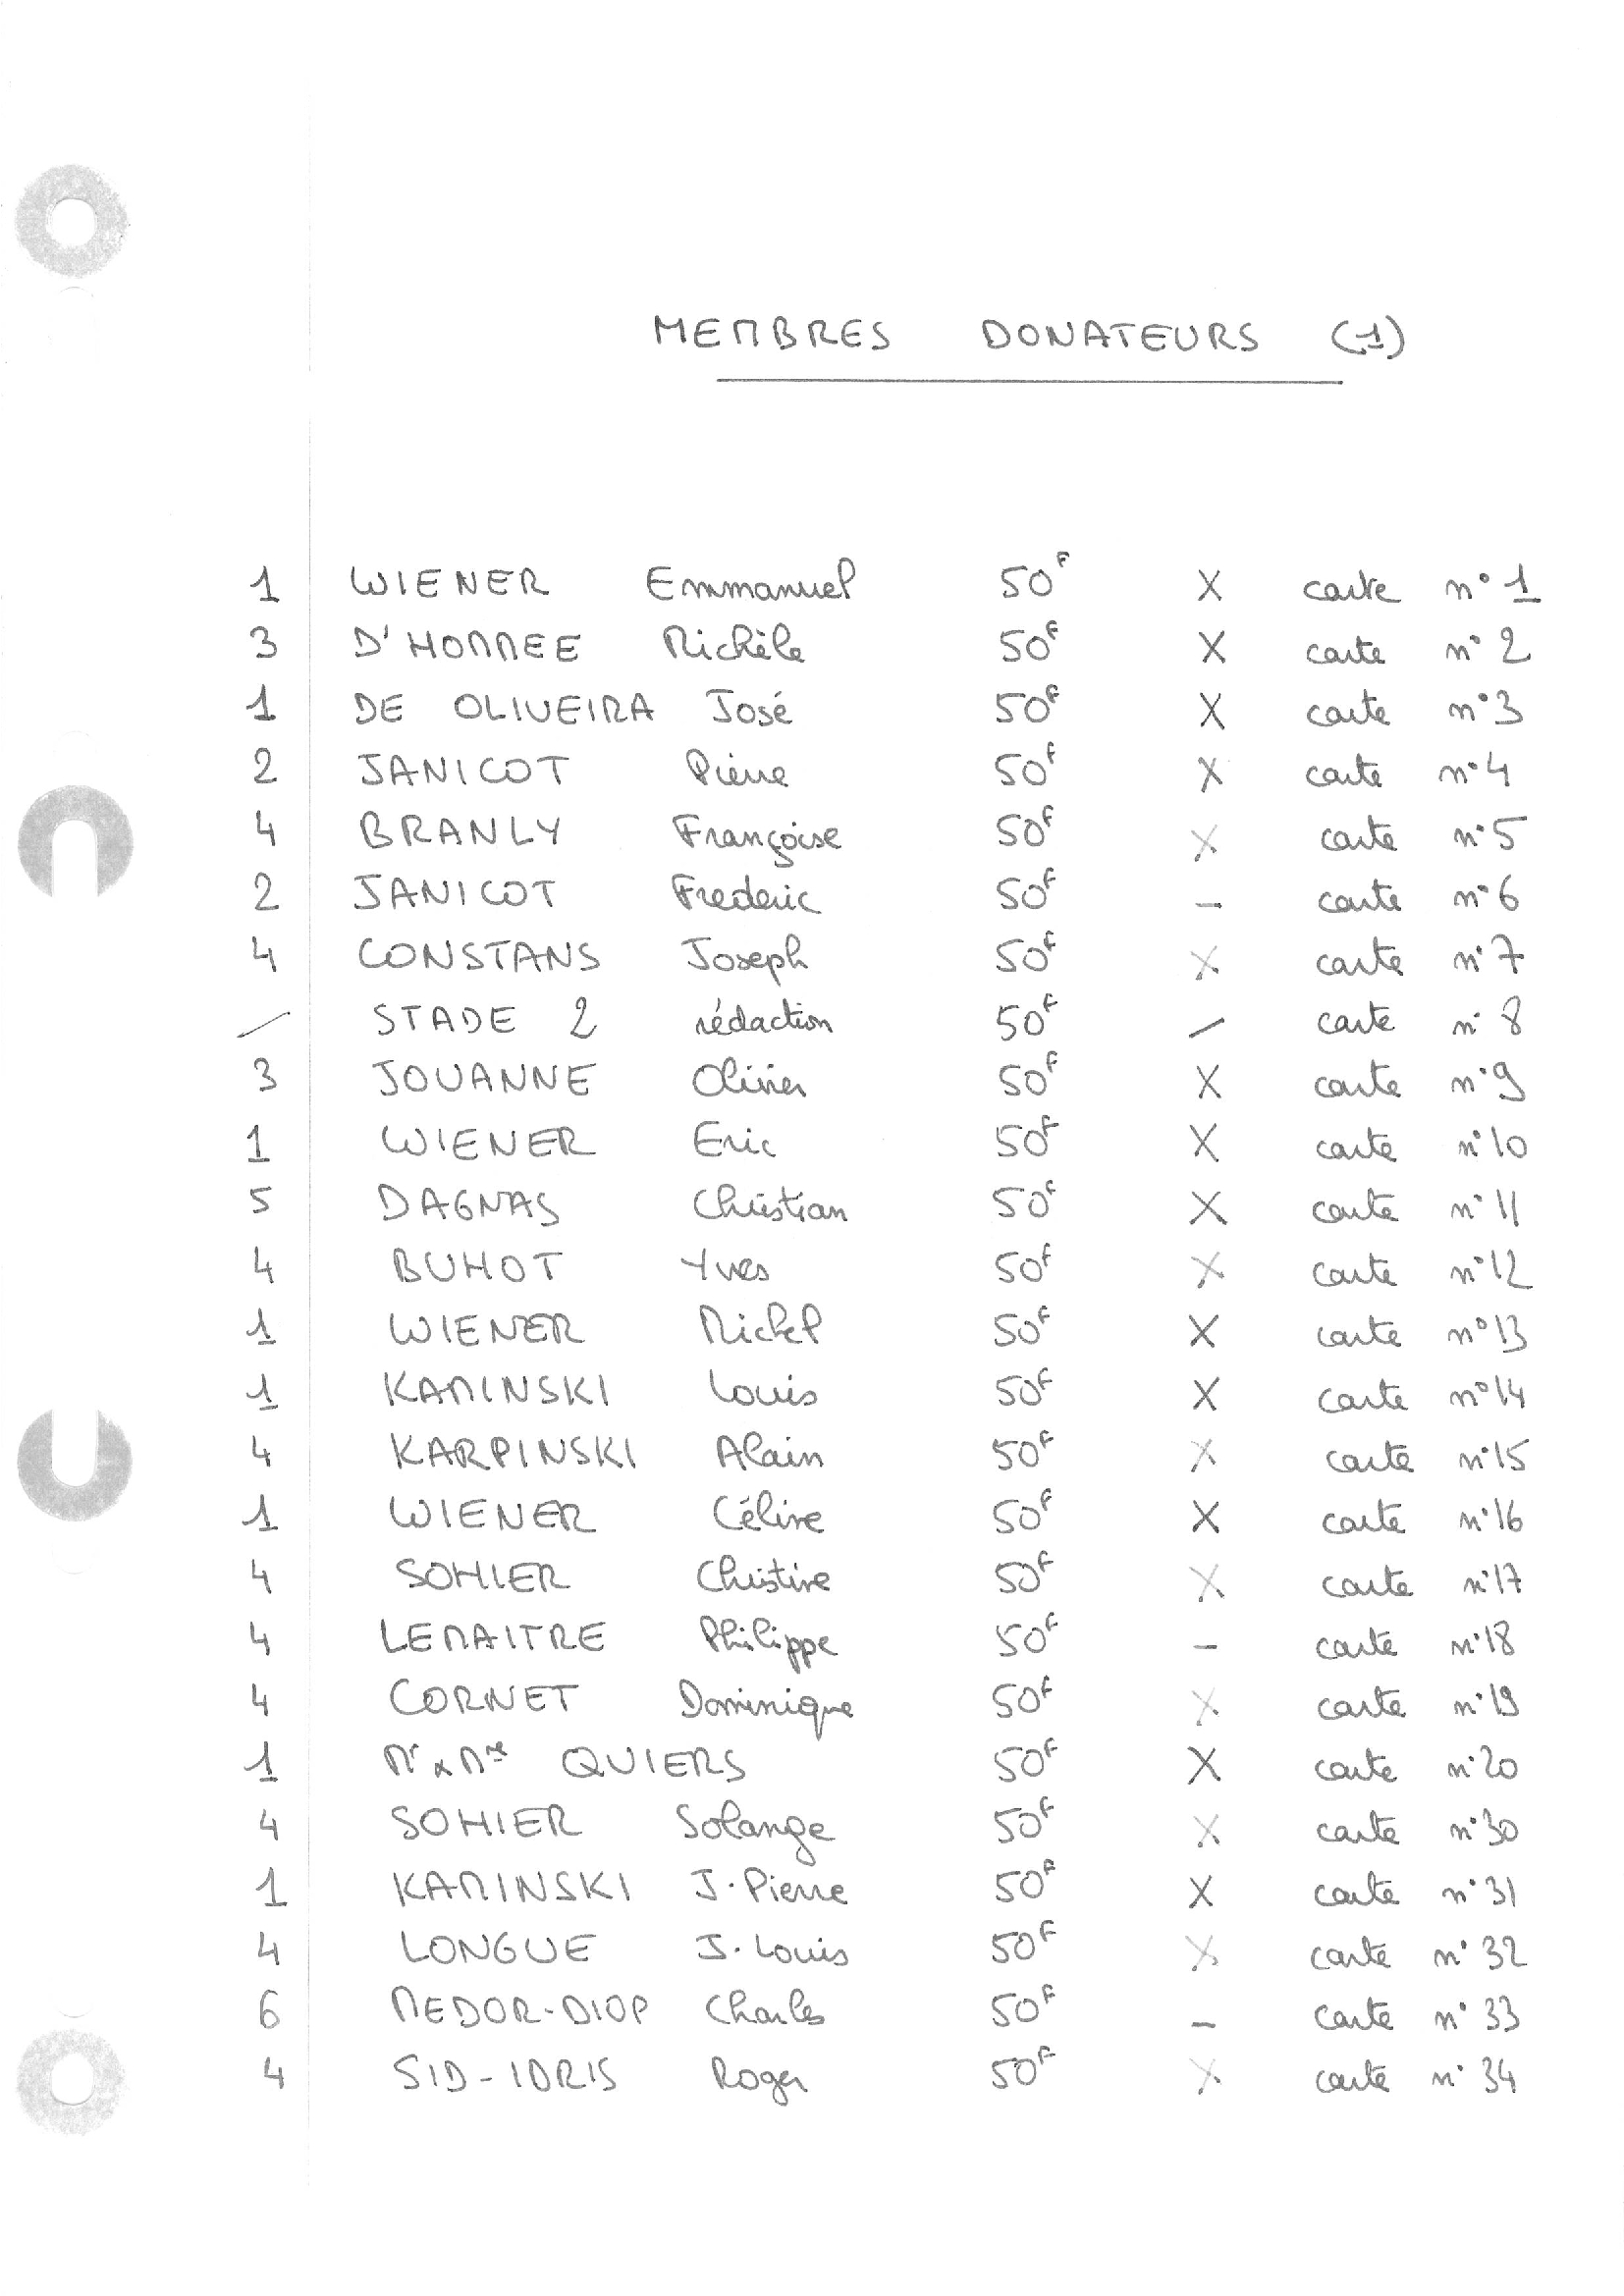 MEMBRES DONATEURS (1)
1 WIENER Emmanuel 50F X carte n° 1
3 D'HOMMEE Michèle 50F X carte n° 2
1 DE OLIVEIRA José 50F X carte n° 3
2 JANICOT Pierre 50F X carte n° 4
4 BRANLY Françoise 50F X carte n° 5
2 JANICOT Frederic 50F - carte n° 6
4 CONSTANS Joseph 50F X carte n° 7
/ STADE 2 rédaction 50F / carte n° 8
3 JOUANNE Olivier 50F X carte n° 9
1 WIENER Eric 50F X carte n° 10
5 DAGNAS Christian 50F X carte n° 11
4 BUHOT Yves 50F X carte n° 12
1 WIENER Michel 50F X carte n° 13
1 KAMINSKI Louis 50F X carte n° 14
4 KARPINSKI Alain 50F X carte n° 15
1 WIENER Céline 50F X carte n° 16
4 SOHIER Christine 50F X carte n° 17
4 LEMAITRE Philippe 50F - carte n° 18
4 CORNET Dominique 50F X carte n° 19
1 Mr & Mme QUIERS 50F X carte n° 20
4 SOHIER Solange 50F X carte n° 30
1 KAMINSKI J. Pierre 50F X carte n° 31
4 LONGUE J. Louis 50F X carte n° 32
6 MEDOR-DIOP Charles 50F - carte n° 33
4 SID-IDRIS Roger 50F X carte n° 34